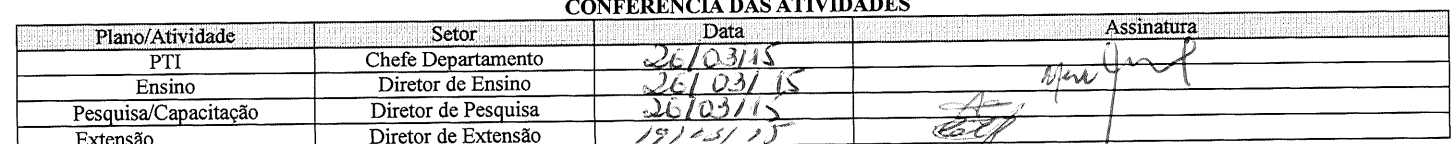 CONFERÊNCIA DAS ATIVIDADES
Plano/Atividade Setor Data Assinatura
PTI Chefe Departamento 26/03/15
Ensino Diretor de Ensino 26/03/15
Pesquisa/Capacitação Diretor de Pesquisa 26/03/15
Extensão Diretor de Extensão 19/03/15